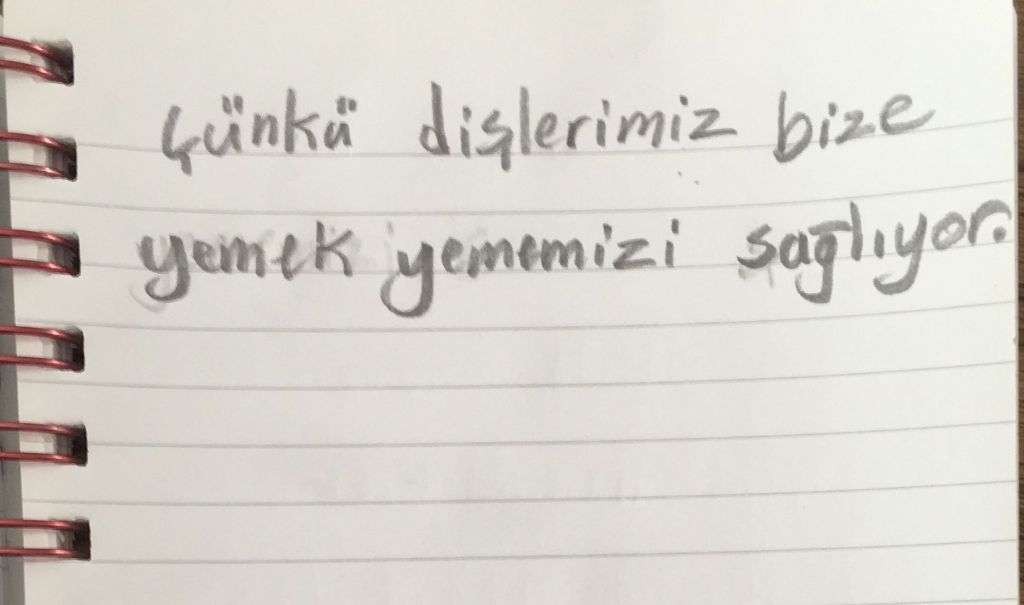 Çünkü dişlerimiz bize
yemek yememizi sağlıyor.